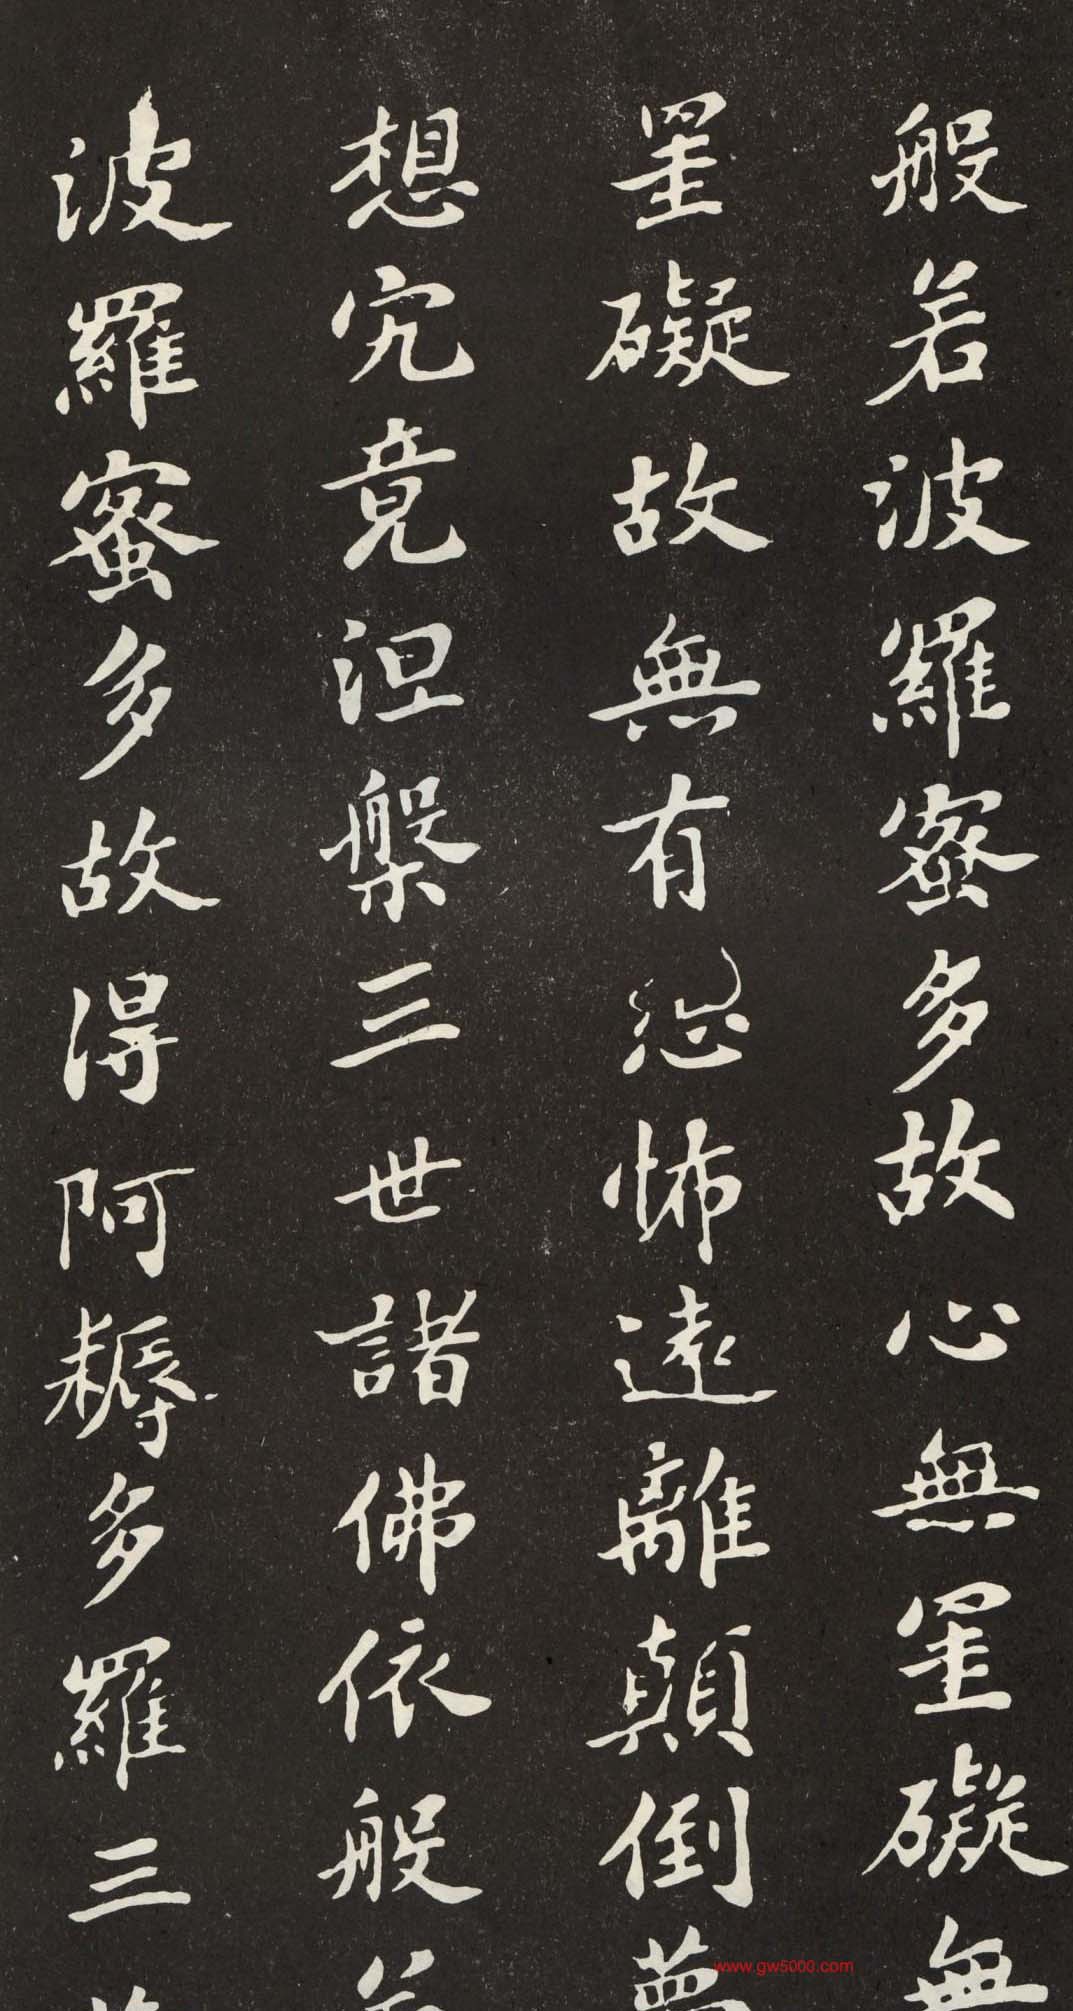 般若波羅蜜多故心無罣礙無
罣礙故無有恐怖遠離顛倒夢
想究竟涅槃三世諸佛依般若
波羅蜜多故得阿耨多羅三
www.gw5000.com